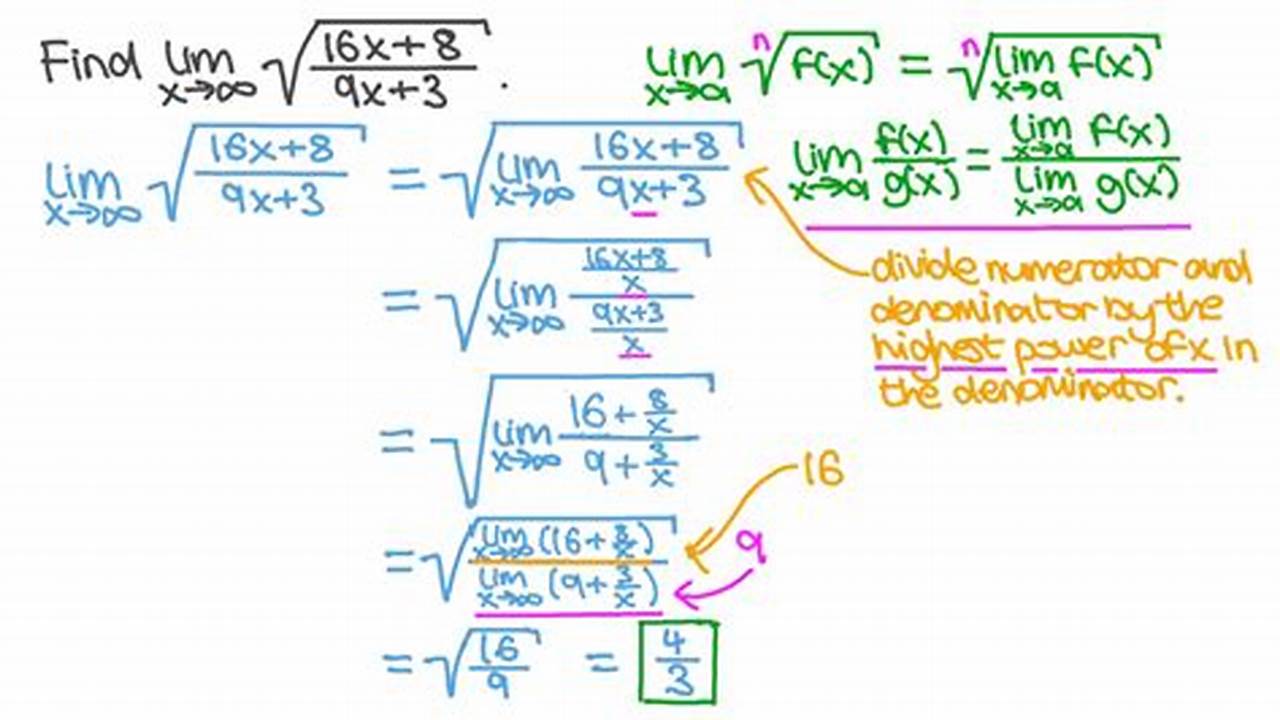 Find lim x→∞ √((16x+8)/(9x+3)) .
lim x→a ⁿ√(f(x)) = ⁿ√(lim x→a f(x))
lim x→a f(x)/g(x) = (lim x→a f(x))/(lim x→a g(x))
lim x→∞ √((16x+8)/(9x+3)) = √(lim x→∞ (16x+8)/(9x+3))
divide numerator and
denominator by the
highest power of x in
the denominator.
= √(lim x→∞ ((16x+8)/x)/((9x+3)/x))
= √(lim x→∞ (16+8/x)/(9+3/x))
16
= √((lim x→∞ (16+8/x))/(lim x→∞ (9+3/x)))
9
= √(16/9) = 4/3